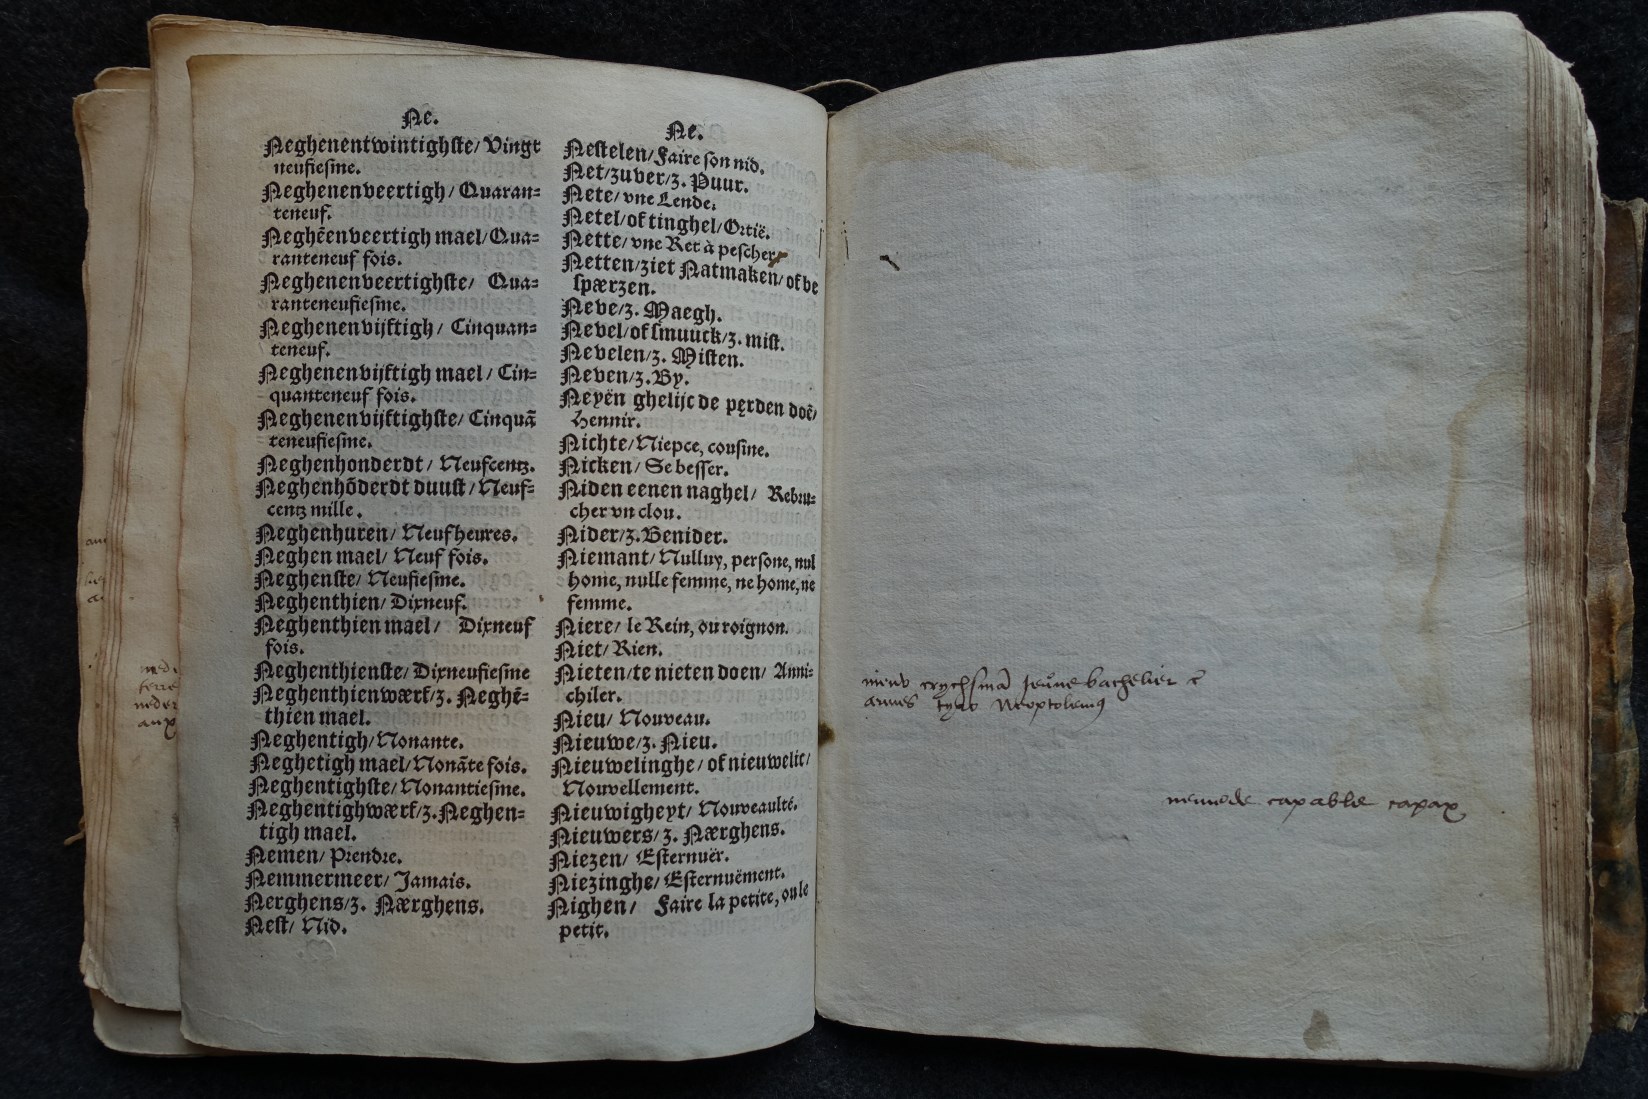 Ne.
Neghenentwintighste/ Vingt
neufiesme.
Neghenenveertigh/ Quaran-
teneuf.
Neghēenveertigh mael/ Qua-
ranteneuf fois.
Neghenenveertighste/ Qua-
ranteneufiesme.
Neghenenvijftigh/ Cinquan-
teneuf.
Neghenenvijftigh mael/ Cin-
quanteneuf fois.
Neghenenvijftighste/ Cinquā
teneufiesme.
Neghenhonderdt/ Neufcentz.
Neghenhōderdt duust/ Neuf-
centz mille.
Neghenhuren/ Neuf heures.
Neghen mael/ Neuf fois.
Neghenste/ Neufiesme.
Neghenthien/ Dixneuf.
Neghenthien mael/ Dixneuf
fois.
Neghenthienste/ Dixneufiesme
Neghenthienwærf/z. Neghē-
thien mael.
Neghentigh/ Nonante.
Neghētigh mael/ Nonāte fois.
Neghentighste/ Nonantiesme.
Neghentighwærf/z. Neghen-
tigh mael.
Nemen/ Prendre.
Nemmermeer/ Jamais.
Nerghens/z. Nærghens.
Nest/ Nid.
Ne.
Nestelen/ Faire son nid.
Net/zuver/z. Puur.
Nete/ vne Lende.
Netel/of tinghel/ Ortië.
Nette/ vne Ret à pescher
Netten/ziet Natmaken/of be
spærzen.
Neve/z. Maegh.
Nevel/of smuuck/z. mist.
Nevelen/z. Misten.
Neven/z. By.
Neyēn ghelijc de pęrden doē/
Hennir.
Nichte/ Niepce, cousine.
Nicken/ Se besser.
Niden eenen naghel/ Rebru-
cher vn clou.
Nider/z. Benider.
Niemant/ Nulluy, persone, nul
home, nulle femme, ne home, ne
femme.
Niere/ le Rein, ou roignon.
Niet/ Rien.
Nieten/te nieten doen/ Anni-
chiler.
Nieu/ Nouveau.
Nieuwe/z. Nieu.
Nieuwelinghe/ of nieuwelic/
Nouvellement.
Nieuwigheyt/ Nouveaulté.
Nieuwers/z. Nærghens.
Niezen/ Esternuër.
Niezinghe/ Esternuëment.
Nighen/ Faire la petite, ou le
petit.
nieuw crychsmā Jeusne bachelier ē
armes tyro Neoptolemus
capable capax